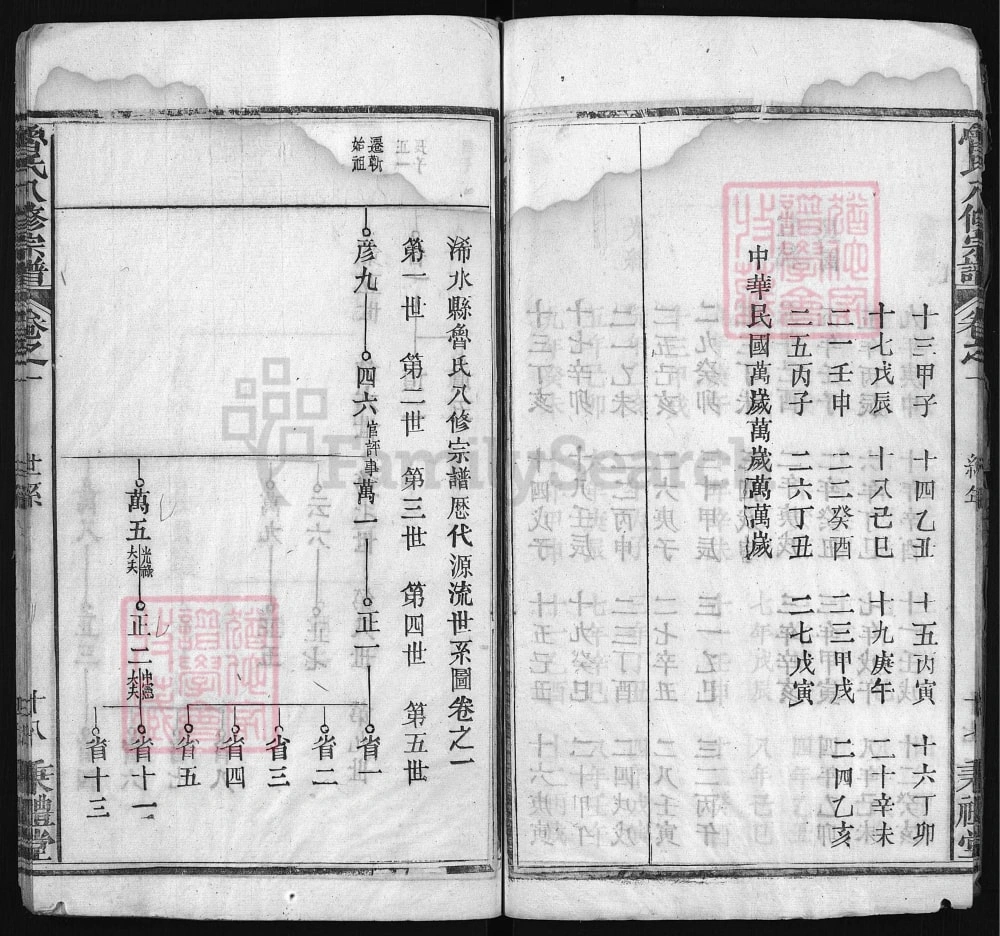 十三甲子 十四乙丑 十五丙寅 十六丁卯
十七戊辰 十八己巳 十九庚午 二十辛未
二一壬申 二二癸酉 二三甲戌 二四乙亥
二五丙子 二六丁丑 二七戊寅
中華民國萬歲萬歲萬萬歲
浠水縣魯氏八修宗譜歷代源流世系圖卷之一
第一世 第二世 第三世 第四世 第五世
遷
始祖
彦九 四六 官評事 萬一 正一 省一
省二
省三
省四
省五
萬五 光祿大夫 正二 中憲大夫 省十一
省十三
魯氏八修宗譜
卷之一
世系
十八
秉禮堂
FamilySearch